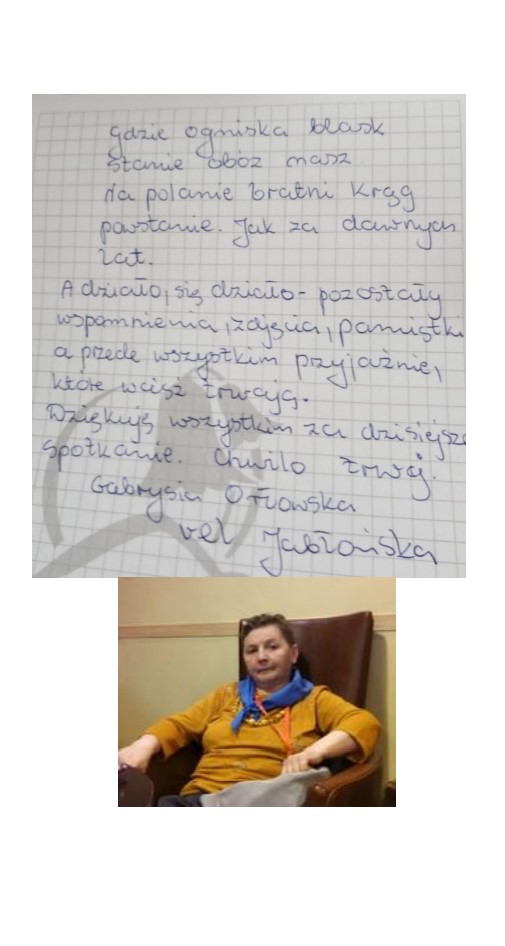 gdzie ogniska blask
stanie obóz nasz
Na polanie bratni krąg
powstanie. Jak za dawnych
lat.
A działo, się działo - pozostały
wspomnienia, zdjęcia, pamiątki
a przede wszystkim przyjaźnie,
które wciąż trwają.
Dziękuję wszystkim za dzisiejsze
spotkanie. Chwilo trwaj.
Gabrysia Orłowska
vel Jabłońska